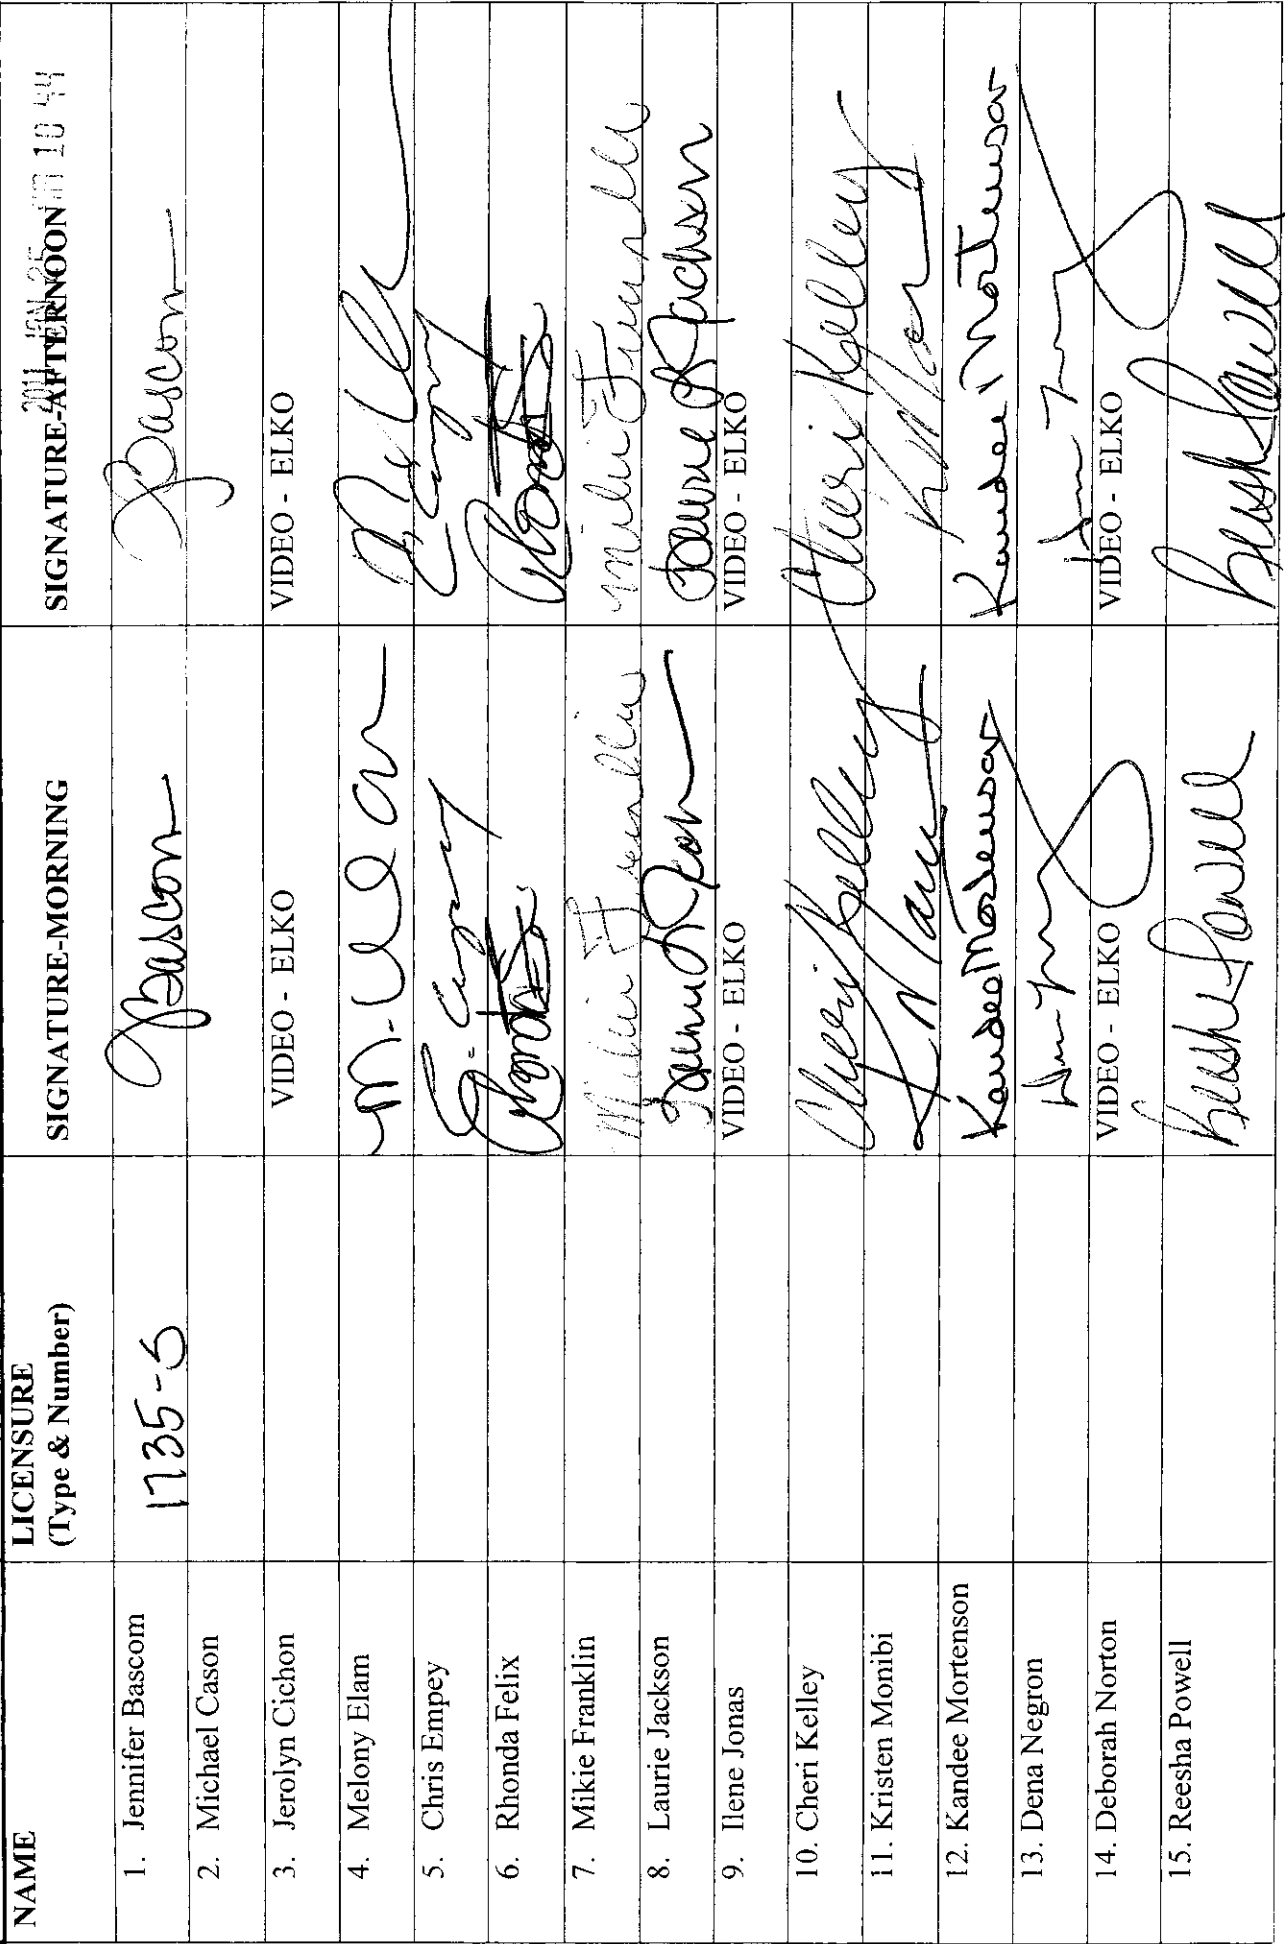 NAME LICENSURE SIGNATURE-MORNING SIGNATURE-AFTERNOON
(Type & Number)
2011 JAN 25 10 44
1. Jennifer Bascom 1735-S JBascom JBascom
2. Michael Cason
3. Jerolyn Cichon VIDEO - ELKO VIDEO - ELKO
4. Melony Elam
5. Chris Empey
6. Rhonda Felix
7. Mikie Franklin Mikie Franklin Mikie Franklin
8. Laurie Jackson Laurie Jackson
9. Ilene Jonas VIDEO - ELKO VIDEO - ELKO
10. Cheri Kelley Cheri Kelley Cheri Kelley
11. Kristen Monibi
12. Kandee Mortenson Kandee Mortenson Kandee Mortenson
13. Dena Negron
14. Deborah Norton VIDEO - ELKO VIDEO - ELKO
15. Reesha Powell Reesha Powell Reesha Powell